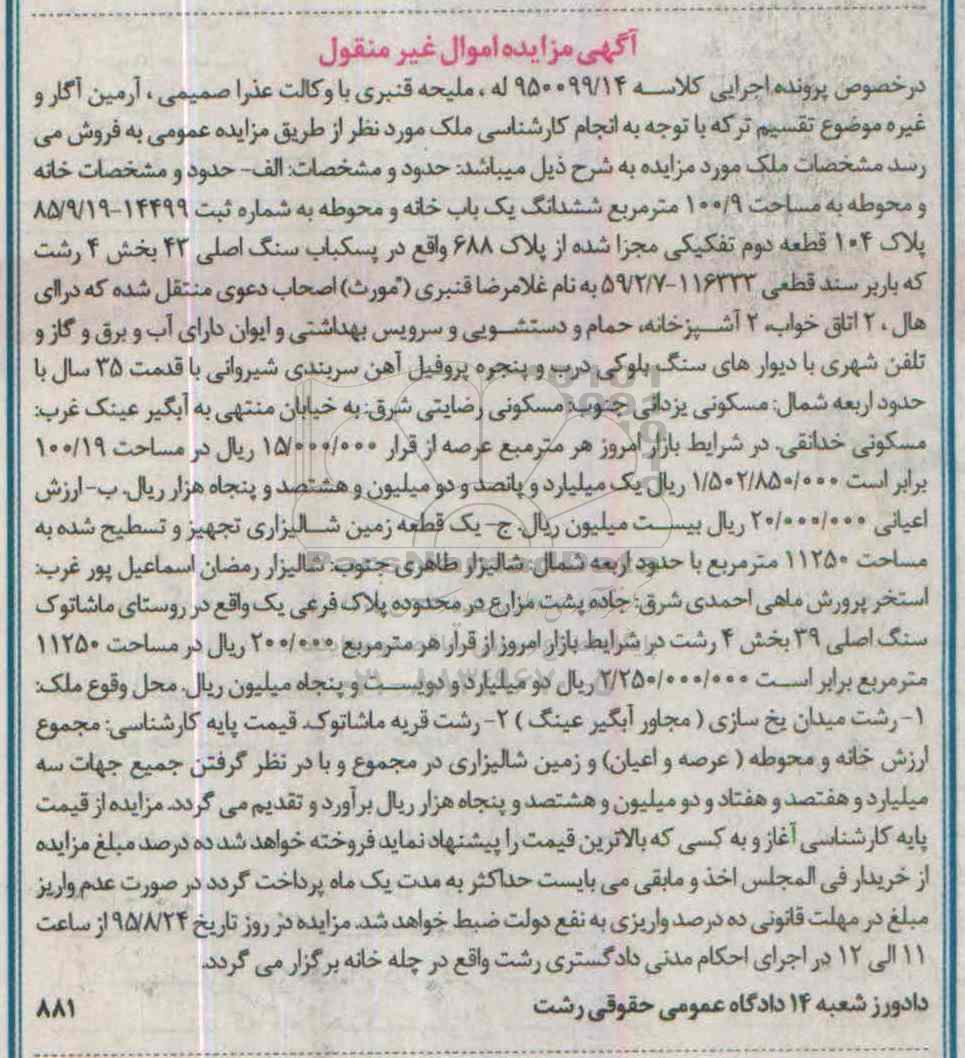 آگهی مزایده اموال غیر منقول
درخصوص پرونده اجرایی کلاسه ۹۵۰۰۹۹/۱۴ له ، ملیحه قنبری با وکالت عذرا صمیمی ، آرمین آگار و
غیره موضوع تقسیم ترکه با توجه به انجام کارشناسی ملک مورد نظر از طریق مزایده عمومی به فروش می
رسد مشخصات ملک مورد مزایده به شرح ذیل میباشد: حدود و مشخصات: الف- حدود و مشخصات خانه
و محوطه به مساحت ۱۰۰/۹ مترمربع ششدانگ یک باب خانه و محوطه به شماره ثبت ۱۴۴۹۹-۸۵/۹/۱۹
پلاک ۱۰۴ قطعه دوم تفکیکی مجزا شده از پلاک ۶۸۸ واقع در پسکیاب سنگ اصلی ۴۳ بخش ۴ رشت
که باربر سند قطعی ۱۱۶۳۳۳-۵۹/۲/۷ به نام غلامرضا قنبری (مورث) اصحاب دعوی منتقل شده که درای
هال ، ۲ اتاق خواب، ۲ آشپزخانه، حمام و دستشویی و سرویس بهداشتی و ایوان دارای آب و برق و گاز و
تلفن شهری با دیوار های سنگ بلوکی درب و پنجره پروفیل آهن سربندی شیروانی با قدمت ۳۵ سال با
حدود اربعه شمال: مسکونی یزدانی جنوب: مسکونی رضایتی شرق: به خیابان منتهی به آبگیر عینک غرب:
مسکونی خدانقی. در شرایط بازار امروز هر مترمبع عرصه از قرار ۱۵/۰۰۰/۰۰۰ ریال در مساحت ۱۰۰/۱۹
برابر است ۱/۵۰۲/۸۵۰/۰۰۰ ریال یک میلیارد و پانصد و دو میلیون و هشتصد و پنجاه هزار ریال. ب- ارزش
اعیانی ۲۰/۰۰۰/۰۰۰ ریال بیست میلیون ریال. ج- یک قطعه زمین شالیزاری تجهیز و تسطیح شده به
مساحت ۱۱۲۵۰ مترمربع با حدود اربعه شمال: شالیزار طاهری جنوب: شالیزار رمضان اسماعیل پور غرب:
استخر پرورش ماهی احمدی شرق: جاده پشت مزارع در محدوده پلاک فرعی یک واقع در روستای ماشاتوک
سنگ اصلی ۳۹ بخش ۴ رشت در شرایط بازار امروز از قرار هر مترمربع ۲۰۰/۰۰۰ ریال در مساحت ۱۱۲۵۰
مترمربع برابر است ۲/۲۵۰/۰۰۰/۰۰۰ ریال دو میلیارد و دویست و پنجاه میلیون ریال. محل وقوع ملک:
۱- رشت میدان یخ سازی ( مجاور آبگیر عینگ ) ۲- رشت قریه ماشاتوک. قیمت پایه کارشناسی: مجموع
ارزش خانه و محوطه ( عرصه و اعیان) و زمین شالیزاری در مجموع و با در نظر گرفتن جمیع جهات سه
میلیارد و هفتصد و هفتاد و دو میلیون و هشتصد و پنجاه هزار ریال برآورد و تقدیم می گردد. مزایده از قیمت
پایه کارشناسی آغاز و به کسی که بالاترین قیمت را پیشنهاد نماید فروخته خواهد شد ده درصد مبلغ مزایده
از خریدار فی المجلس اخذ و مابقی می بایست حداکثر به مدت یک ماه پرداخت گردد در صورت عدم واریز
مبلغ در مهلت قانونی ده درصد واریزی به نفع دولت ضبط خواهد شد. مزایده در روز تاریخ ۹۵/۸/۲۴ از ساعت
۱۱ الی ۱۲ در اجرای احکام مدنی دادگستری رشت واقع در چله خانه برگزار می گردد.
دادورز شعبه ۱۴ دادگاه عمومی حقوقی رشت ۸۸۱